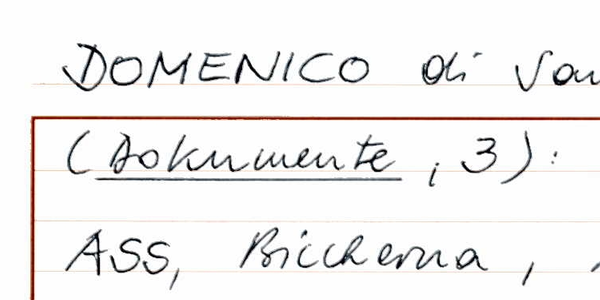 DOMENICO di
(Dokumente ; 3) :
ASS, Biccherna ,